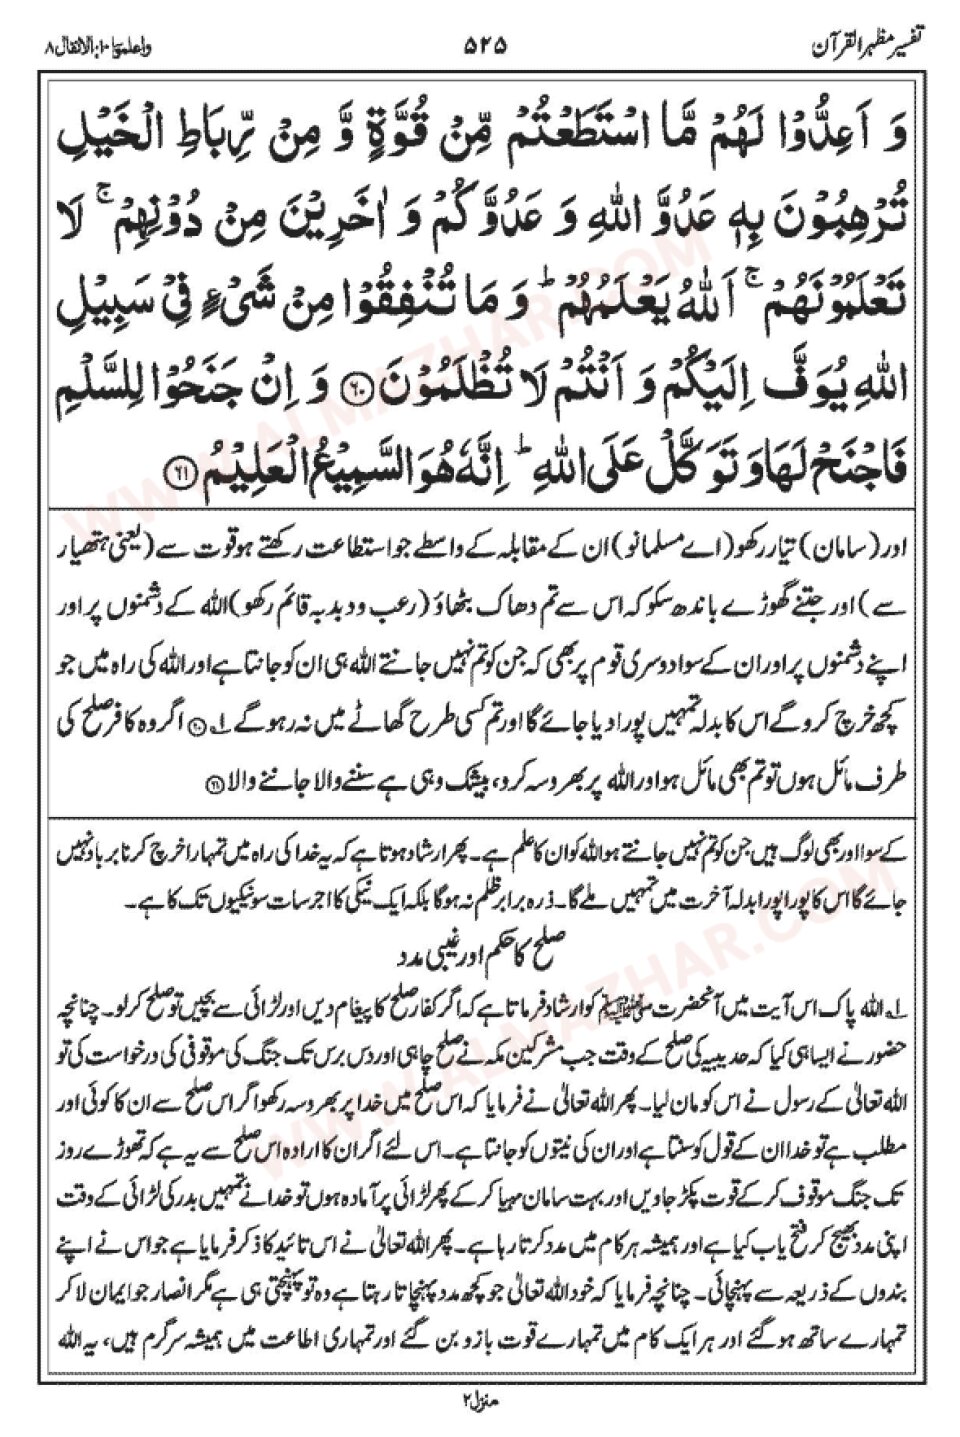 تفسیر مظہر القرآن
۵۲۵
واعلموا ۱۰: الانفال ۸
وَ اَعِدُّوْا لَهُمْ مَّا اسْتَطَعْتُمْ مِّنْ قُوَّةٍ وَّ مِنْ رِّبَاطِ الْخَيْلِ
تُرْهِبُوْنَ بِهٖ عَدُوَّ اللّٰهِ وَ عَدُوَّكُمْ وَ اٰخَرِيْنَ مِنْ دُوْنِهِمْ ۚ لَا
تَعْلَمُوْنَهُمْ ۚ اَللّٰهُ يَعْلَمُهُمْ ؕ وَ مَا تُنْفِقُوْا مِنْ شَیْءٍ فِیْ سَبِيْلِ
اللّٰهِ يُوَفَّ اِلَيْكُمْ وَ اَنْتُمْ لَا تُظْلَمُوْنَ ﴿۶۰﴾ وَ اِنْ جَنَحُوْا لِلسَّلْمِ
فَاجْنَحْ لَهَا وَ تَوَكَّلْ عَلَى اللّٰهِ ؕ اِنَّهٗ هُوَ السَّمِيْعُ الْعَلِيْمُ ﴿۶۱﴾
اور (سامان) تیار رکھو (اے مسلمانو) ان کے مقابلہ کے واسطے جو استطاعت رکھتے ہو قوت سے (یعنی ہتھیار
سے) اور جتنے گھوڑے باندھ سکو کہ اس سے تم دھاک بٹھاؤ (رعب و دبدبہ قائم رکھو) اللہ کے دشمنوں پر اور
اپنے دشمنوں پر اور ان کے سوا دوسری قوم پر بھی کہ جن کو تم نہیں جانتے اللہ ہی ان کو جانتا ہے اور اللہ کی راہ میں جو
کچھ خرچ کرو گے اس کا بدلہ تمہیں پورا دیا جائے گا اور تم کسی طرح گھاٹے میں نہ رہو گے ۱؎ ﴿۶۰﴾ اگر وہ کافر صلح کی
طرف مائل ہوں تو تم بھی مائل ہو اور اللہ پر بھروسہ کرو، بیشک وہی ہے سننے والا جاننے والا ﴿۶۱﴾
کے سوا اور بھی لوگ ہیں جن کو تم نہیں جانتے ہو اللہ کو ان کا علم ہے۔ پھر ارشاد ہوتا ہے کہ یہ خدا کی راہ میں تمہارا خرچ کرنا برباد نہیں
جائے گا اس کا پورا پورا بدلہ آخرت میں تمہیں ملے گا۔ ذرہ برابر ظلم نہ ہوگا بلکہ ایک نیکی کا اجر سات سو نیکیوں تک کا ہے۔
صلح کا حکم اور غیبی مدد
۱؎ اللہ پاک اس آیت میں آنحضرت ﷺ کو ارشاد فرماتا ہے کہ اگر کفار صلح کا پیغام دیں اور لڑائی سے بچیں تو صلح کر لو۔ چنانچہ
حضور نے ایسا ہی کیا کہ حدیبیہ کی صلح کے وقت جب مشرکین مکہ نے صلح چاہی اور دس برس تک جنگ کی موقوفی کی درخواست کی تو
اللہ تعالیٰ کے رسول نے اس کو مان لیا۔ پھر اللہ تعالیٰ نے فرمایا کہ اس صلح میں خدا پر بھروسہ رکھو اگر اس صلح سے ان کا کوئی اور
مطلب ہے تو خدا ان کے قول کو سنتا ہے اور ان کی نیتوں کو جانتا ہے۔ اس لئے اگر ان کا ارادہ اس صلح سے یہ ہے کہ تھوڑے روز
تک جنگ موقوف کر کے قوت پکڑ جاویں اور بہت سامان مہیا کر کے پھر لڑائی پر آمادہ ہوں تو خدا نے تمہیں بدر کی لڑائی کے وقت
اپنی مدد بھیج کر فتح یاب کیا ہے اور ہمیشہ ہر کام میں مدد کرتا رہا ہے۔ پھر اللہ تعالیٰ نے اس تائید کا ذکر فرمایا ہے جو اس نے اپنے
بندوں کے ذریعہ سے پہنچائی۔ چنانچہ فرمایا کہ خود اللہ تعالیٰ جو کچھ مدد پہنچاتا رہتا ہے وہ تو پہنچتی ہی ہے مگر انصار جو ایمان لا کر
تمہارے ساتھ ہو گئے اور ہر ایک کام میں تمہارے قوت بازو بن گئے اور تمہاری اطاعت میں ہمیشہ سرگرم ہیں، یہ اللہ
منزل ۲
WWW.ALMAZHAR.COM
WWW.ALMAZHAR.COM